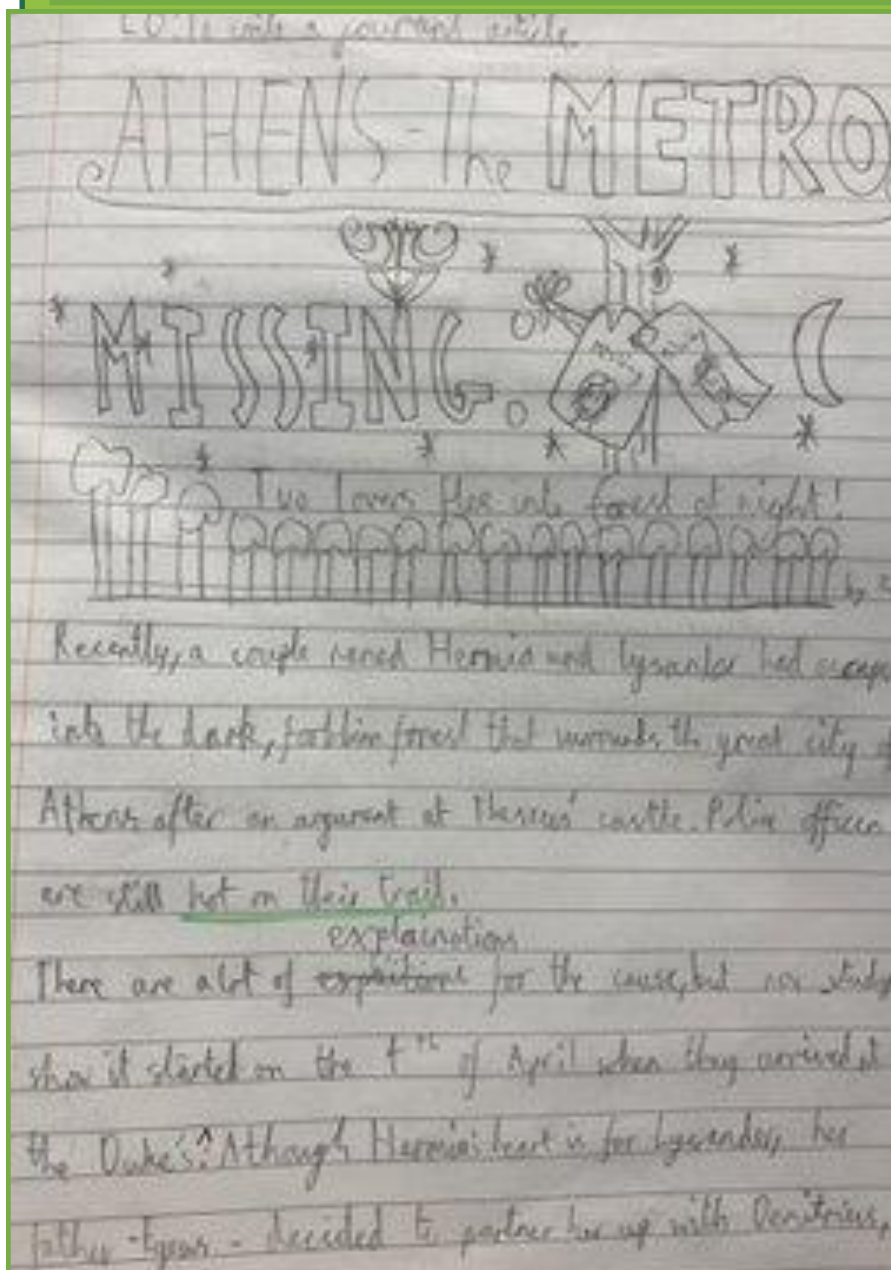 LO: To write a courant article
ATHENS - The METRO
MISSING.
Two lovers flee into forest at night!
by
Recently, a couple named Hermia and Lysander had escap
into the dark, forest that surrounds the great city of
Athens after an argument at Theseus' castle. Police officer
are still hot on their trail.
explainations
There are alot of for the cause, but now study
show it started on the of April when they arrived at
the Duke's. ^ Athough Hermia's heart is for Lysander, her
father - Egeus - decided to partner her up with Demitrius,